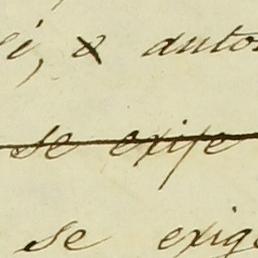 é, o autor
se exige
se exige